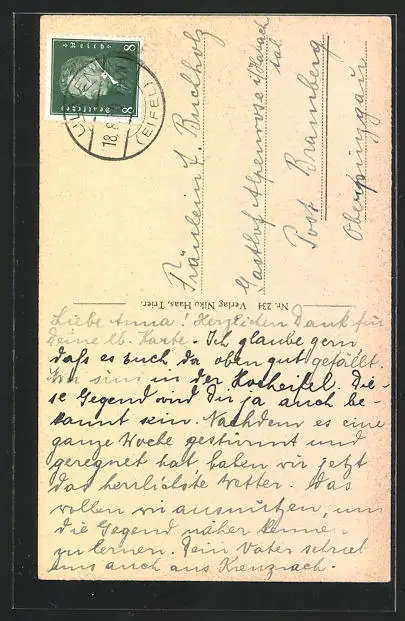 Deutsches Reich
8 8
ULMEN
18.8.
(EIFEL)
Fräulein E. Buchholz
Gasthof Alpenrose i/Habach
tal
Post Bramberg
Oberpinzgau
Nr. 234 Verlag Niko Haas, Trier.
Liebe Anna! Herzlichen Dank für
Deine lb. Karte. Ich glaube gern
daß es euch da oben gut gefällt.
Wir sind in der Hocheifel. Die-
se Gegend wird Dir ja auch be-
kannt sein. Nachdem es eine
ganze Woche gestürmt und
geregnet hat, haben wir jetzt
das herrlichste Wetter. Das
wollen wir ausnützen, um
die Gegend näher kennen
zu lernen. Dein Vater schrieb
uns auch aus Kreuznach.